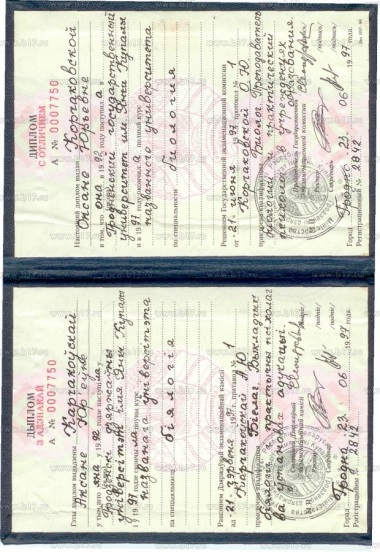 ДЫПЛОМ
З АДЗНАКАЙ
А № 0007750
Гэты дыплом выдадзены Карчакоўскай
Аксане Юр'еўне
у тым, што яна у 1992 годзе паступіла
Гродзенскі дзяржаўны
універсітэт імя Янкі Купалы
і ў 1997 годзе скончыла поўны курс
названага універсітэта
па спецыяльнасці біялогія
Рашэннем Дзяржаўнай экзаменацыйнай камісіі
ад "21" чэрвеня 1997 г. пратакол № 1
Карчакоўскай А.Ю.
прысвоена кваліфікацыя Біёлаг. Выкладчык
біялогіі і практычны псіхолаг
ва установах адукацыі.
Старшыня Дзяржаўнай
экзаменацыйнай камісіі /подпіс/
Рэктар /подпіс/
Сакратар /подпіс/
Горад Гродна 23. 06 1997 года
Рэгістрацыйны № 2842
ДИПЛОМ
С ОТЛИЧИЕМ
А № 0007750
Настоящий диплом выдан Корчаковской
Оксане Юрьевне
в том, что она в 1992 году поступила в
Гродненский государственный
университет им. Янки Купалы
и в 1997 году окончила полный курс
названного университета
по специальности биология
Решением Государственной экзаменационной комиссии
от "21" июня 1997 протокол № 1
Корчаковской О.Ю.
присвоена квалификация Биолог. Преподаватель
биологии и практический
психолог в учреждениях
образования
Председатель Государственной
экзаменационной комиссии
Ректор /подпись/
Секретарь /подпись/
Город Гродно 23. 06 1997 года
Регистрационный № 2842